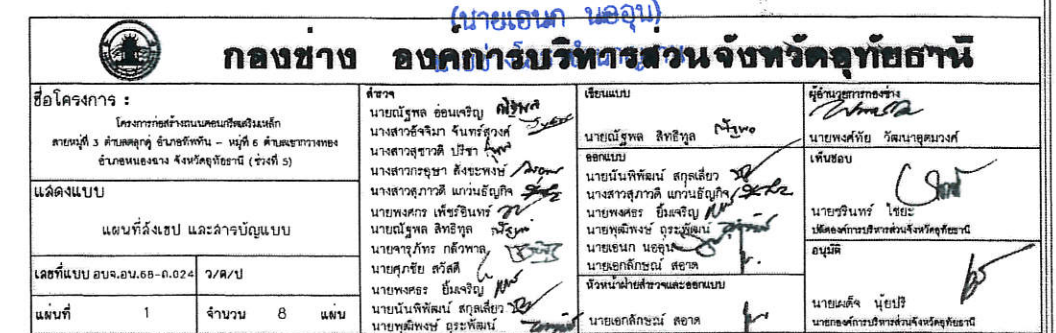 (นายเอนก นออุน)
กองช่าง องค์การบริหารส่วนจังหวัดอุทัยธานี
ชื่อโครงการ :
โครงการก่อสร้างถนนคอนกรีตเสริมเหล็ก
สายหมู่ที่ 3 ตำบลตลุกดู่ อำเภอทัพทัน - หมู่ที่ 6 ตำบลเขากวางทอง
อำเภอหนองฉาง จังหวัดอุทัยธานี (ช่วงที่ 5)
แสดงแบบ
แผนที่สังเขป และสารบัญแบบ
เลขที่แบบ อบจ.อน.68-ถ.024
ว/ด/ป
แผ่นที่ 1
จำนวน 8 แผ่น
สำรวจ
นายณัฐพล อ่อนเจริญ
นางสาวอัจจิมา จันทร์สุวงค์
นางสาวสุชาวดี ปรีชา
นางสาวกรธุษา สังขะพงษ์
นางสาวสุภาวดี แกว่นธัญกิจ
นายพงศกร เพ็ชรอินทร์
นายณัฐพล สิทธิทูล
นายจารุภัทร กลัวพาล
นายศุภชัย สวัสดี
นายพงศธร ยิ้มเจริญ
นายนันพิพัฒน์ สกุลเสี่ยว
นายพุฒิพงษ์ ถุระพัฒน์
เขียนแบบ
นายณัฐพล สิทธิทูล
ออกแบบ
นายนันพิพัฒน์ สกุลเสี่ยว
นางสาวสุภาวดี แกว่นธัญกิจ
นายพงศธร ยิ้มเจริญ
นายพุฒิพงษ์ ถุระพัฒน์
นายเอนก นออุน
นายเอกลักษณ์ สอาด
หัวหน้าฝ่ายสำรวจและออกแบบ
นายเอกลักษณ์ สอาด
ผู้อำนวยการกองช่าง
นายพงศ์ทัย วัฒนาอุตมวงศ์
เห็นชอบ
นายชรินทร์ ไชยะ
ปลัดองค์การบริหารส่วนจังหวัดอุทัยธานี
อนุมัติ
นายเผด็จ นุ้ยปรี
นายกองค์การบริหารส่วนจังหวัดอุทัยธานี